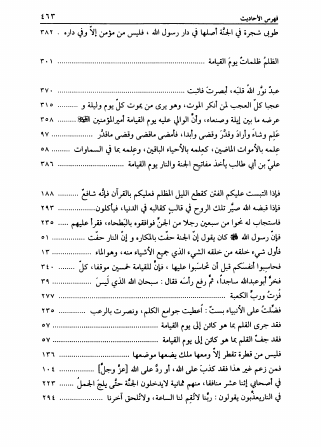 فهرس الأحاديث ٤٦٣
طوبى شجرة في الجنّة أصلها في دار رسول الله ، فليس من مؤمن إلّا وفي داره . ٣٨٢
الظلم ظلمات يوم القيامة ٣٠١
عبد نوّر الله قلبه، أبصرت فاثبت ٣٧٠
عجبا كلّ العجب لمن أنكر الموت، وهو يرى من يموت كلّ يوم وليلة و ٣١٥
عرضه ما بين إيلة وصنعاء، وأنّ الوالي عليه يوم القيامة أميرالمؤمنين ٣٥٨
علم وشاء وأراد وقدّر وقضى وأبدا، فأمضى ماقضى وقضى ماقدّر ٩٧
علمه بالأموات الماضين، كعلمه بالأحياء الباقين، وعلمه بما في السماوات ٥٨
عليّ بن أبي طالب يأخذ مفاتيح الجنة والنار يوم القيامة ٣٨٦
فإذا التبست عليكم الفتن كقطع الليل المظلم فعليكم بالقرآن فإنّه شافع ١٨٨
فإذا قبضه الله صيّر تلك الروح في قالب كقالبه في الدنيا، فيأكلون ٢٩٣
فاستجاب له نحوا من سبعين رجلا من الجنّ فوافقوه بالبطحاء، فقرأ عليهم ٢٣٥
فإنّ رسول الله كان يقول إنّ الجنة حفّت بالمكاره و إنّ النار حفّت ٥١
فأول شيء خلقه من خلقه الشيء الذي جميع الأشياء منه، وهوالماء ١٣
فحاسبوا أنفسكم قبل أن تحاسبوا عليها ، فإنّ للقيامة خمسين موقفا، كلّ ٣٤٠
فخرّ أبوعبدالله ساجداً، ثمّ رفع رأسه فقال : سبحان الله الذي ليس ٣٩
فُزتُ وربّ الكعبة ٢٧٧
فضّلت على الأنبياء بستّ : أعطيت جوامع الكلم، ونصرت بالرعب ٢٣٥
فقد جرى القلم بما هو كائن إلى يوم القيامة ٥٧
فقد جفّ القلم بما هو كائن إلى يوم القيامة ٥٧
فليس من قطرة تقطر إلّا ومعها ملك يضعها موضعها ١٣٦
فمن زعم غير هذا فقد كذب على الله ، أو ردّ على الله [عزّ وجلّ] ١٠٤
في أصحابي إثنا عشر منافقا، منهم ثمانية لايدخلون الجنّة حتّى يلج الجمل ٢٢٣
في النار يعذّبون يقولون : ربّنا لاتقم لنا الساعة، ولاتلحق آخرنا ٢٩٤